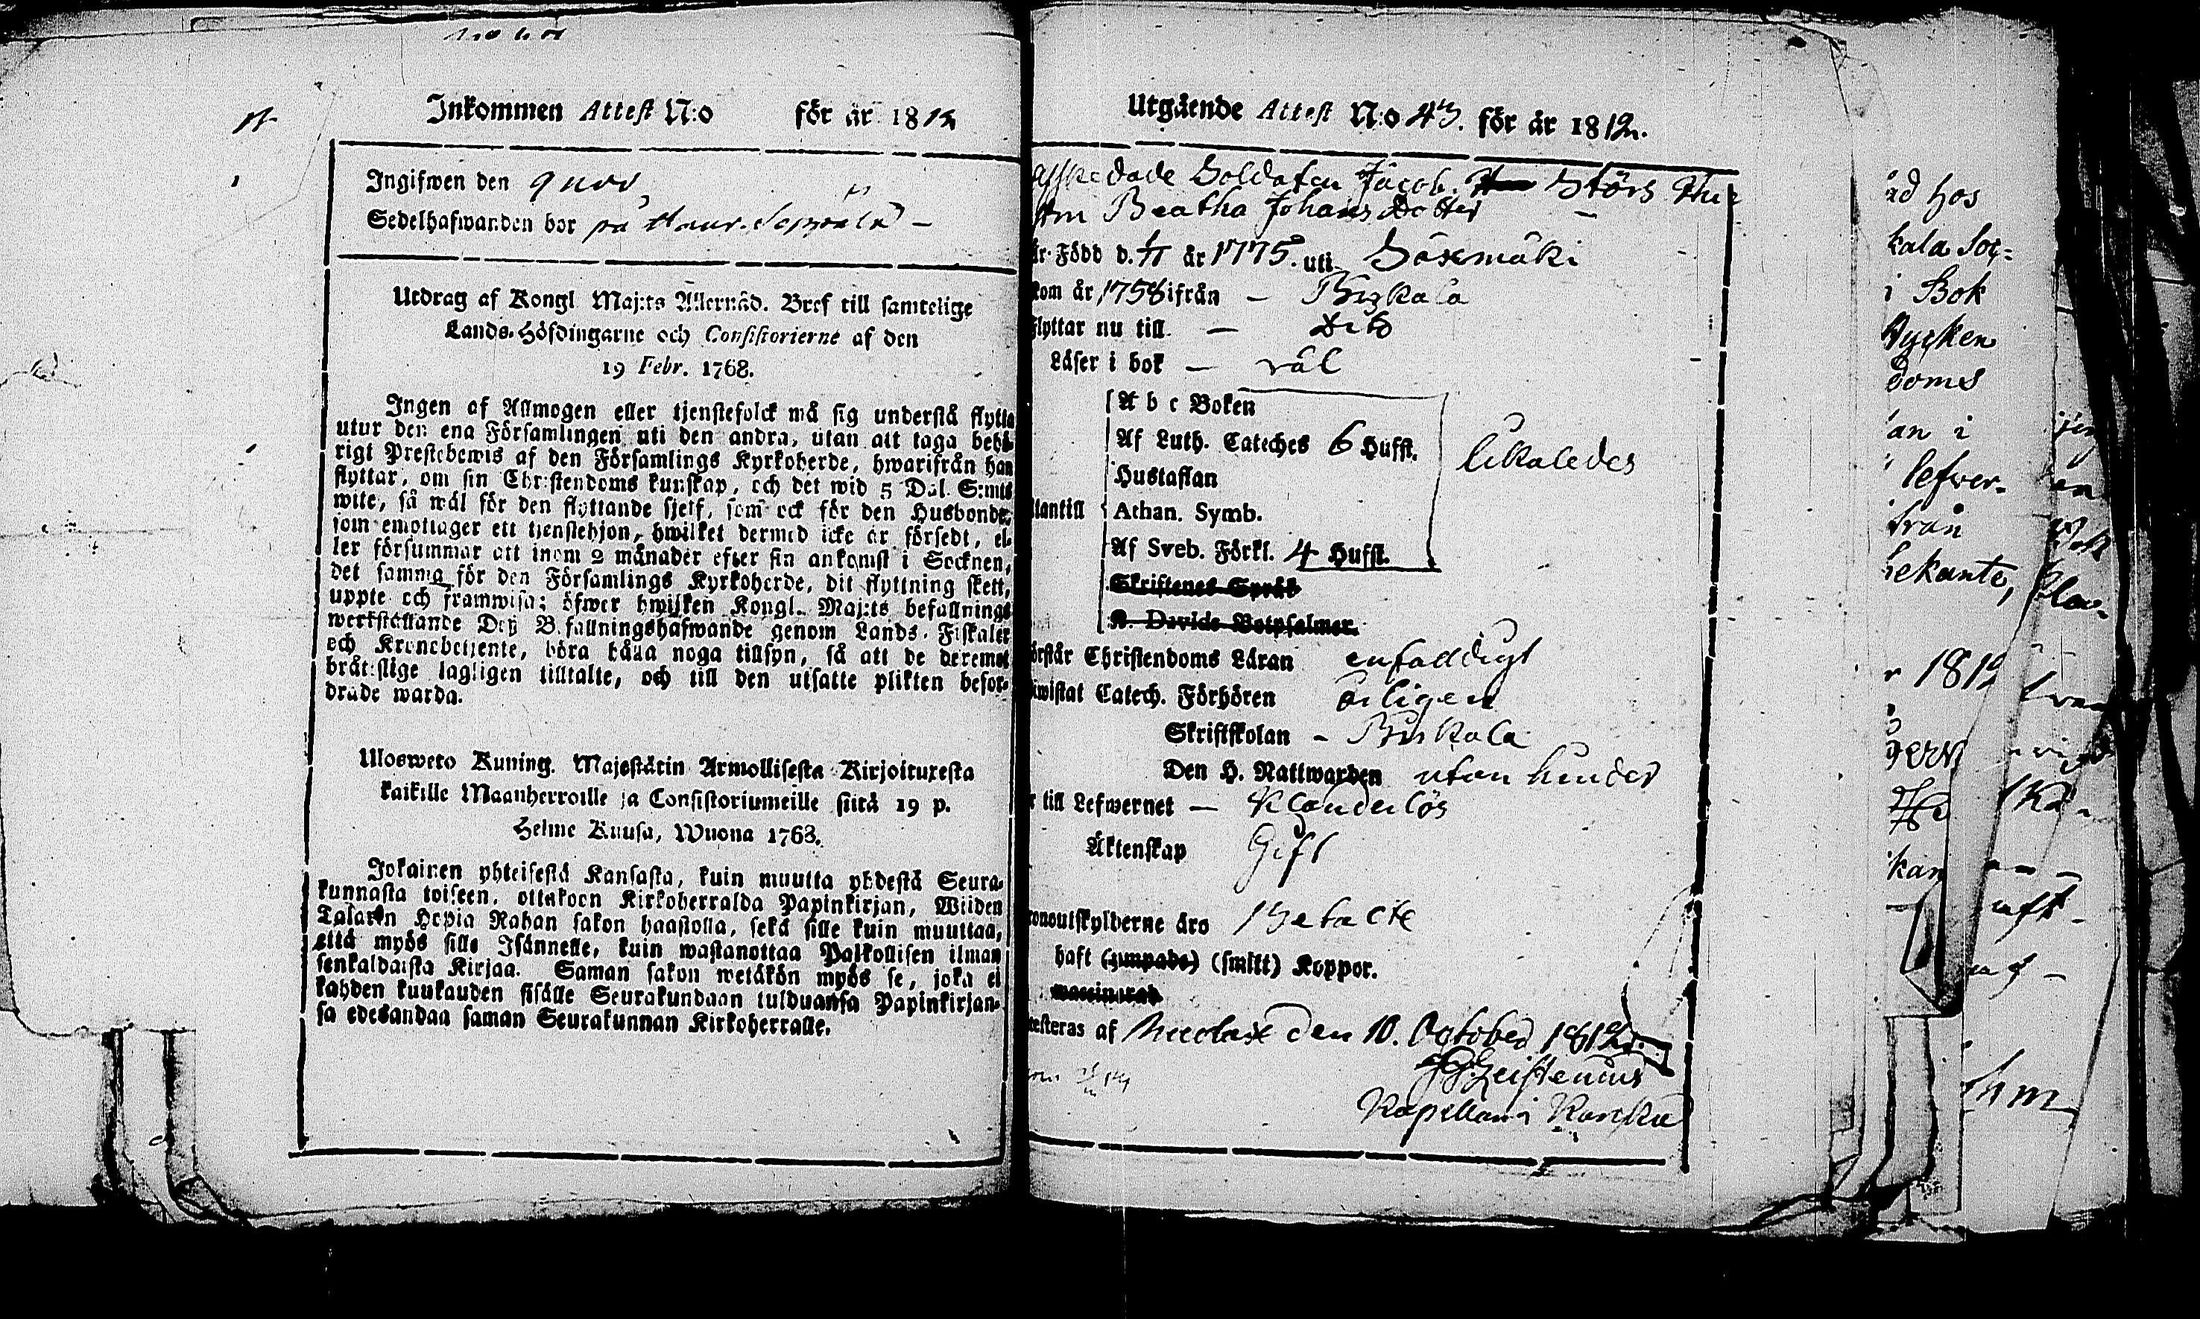 Inkommen Attest N:o för år 1812
Ingifwen den 9 nov
Sedelhafwanden bor på Haur. Seppälä –
Utdrag af Kongl Maj:ts Allernåd. Bref till samtelige
Lands-Höfdingarne och Consistorierne af den
19 Febr. 1768.
Ingen af Allmogen eller tjenstefolck må sig understå flytta
utur den ena Församlingen uti den andra, utan att taga behö-
rigt Prestebewis af den Församlings Kyrkoherde, hwarifrån han
flyttar, om sin Christendoms kunskap, och det wid 5 Dal. S:mts
wite, så wäl för den flyttande sjelf, som ock för den Husbonde,
som emottager ett tjenstehjon, hwilket dermed icke är försedt, el-
ler försummar att inom 2 månader efter sin ankomst i Socknen,
det samma för den Församlings Kyrkoherde, dit flyttning skett,
uppte och framwisa; öfwer hwilken Kongl. Maj:ts befallnings
werkställande Deß Befallningshafwande genom Lands-Fiskaler
och Kronobetjente, böra hålla noga tillsyn, så att de deremot
bråtslige lagligen tilltalte, och till den utsatte plikten befor-
drade warda.
Ulosweto Kuning. Majestätin Armollisesta Kirjoituxesta
kaikille Maanherroille ja Consistoriumeille siitä 19 p.
Helme Kuusa, Wuona 1768.
Jokainen yhteisestä Kansasta, kuin muutta yhdestä Seura-
kunnasta toiseen, ottakoon Kirkoherralda Papinkirjan, Wiiden
Talarin Hopia Rahan sakon haastolla, sekä sille kuin muuttaa,
että myös sille Isännelle, kuin wastanottaa Palkollisen ilman
senkaldaista Kirjaa. Saman sakon wetäkön myös se, joka ei
kahden kuukauden sisälle Seurakundaan tulduansa Papinkirjan-
sa edesandaa saman Seurakunnan Kirkoherralle.
Utgående Attest N:o 43. för år 1812.
Afskedade Soldaten Jacob Störs Hu
Beatha Johans Dotter
är Född d. år 1775. uti Säxmäki
kom år 1758 ifrån – Birkala
flyttar nu till – dito
Läser i bok – väl
A b c Boken
Af Luth. Cateches 6 Hufst.
Hustaflan
likaledes
utantill
Athan. Symb.
Af Sveb. Förkl. 4 Hufst.
Skriftenes Språk
K. Davids Botpsalmer.
förstår Christendoms Läran enfaldigt
biwistat Catech. Förhören årligen
Skriftskolan – Birkala
Den H. Nattwarden utan hinder
är till Lefwernet – Klanderlös
Äktenskap Gift
Kronoutskylderne äro Betalte
haft (ympade) (smitt) Koppor.
waccinerad
Attesteras af Nicolax den 10. October 1812.
Zeistenius
Kapellan i Karcku
hos
kala Soc=
i Bok
doms
an i
lefver-
från
bekante,
1812